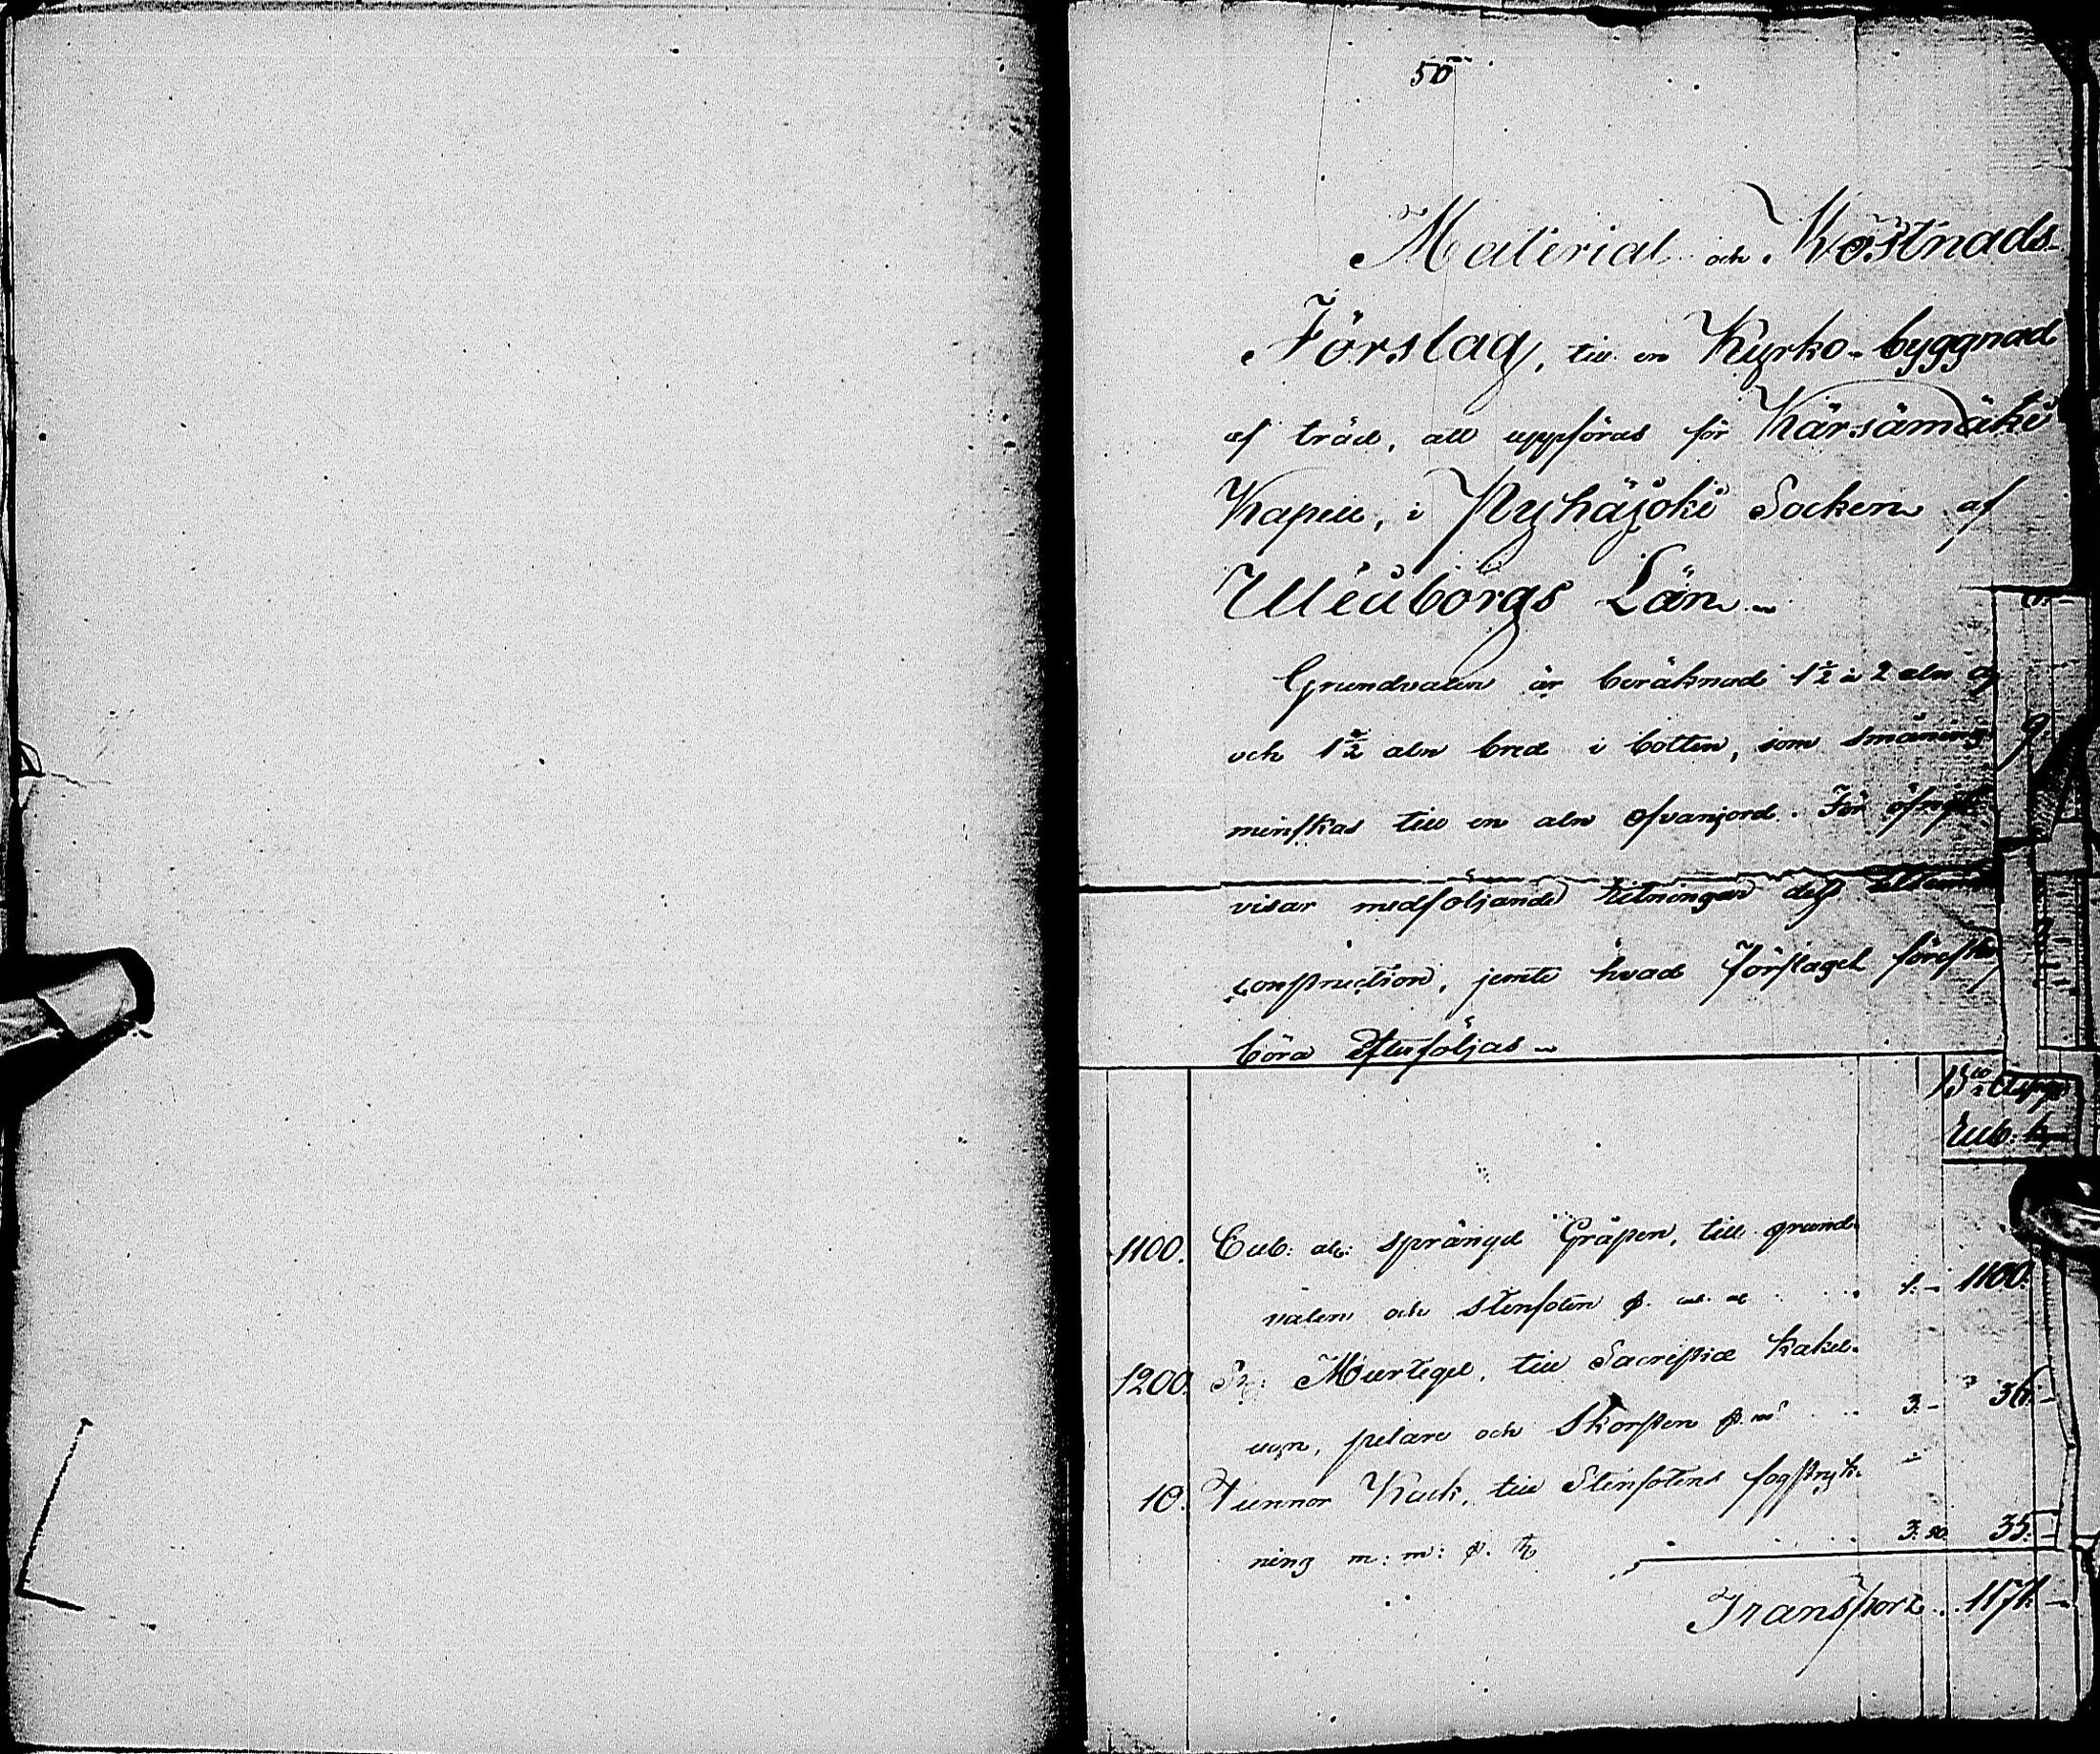 50
Material och Kostnads-
Förslag, till en Kyrko-byggnad
af träd, att uppföras för Kärsämäki
Kapell, i Pyhäjoki Socken af
Uleåborgs Län.
Grundvalen är beräknad 1½ à 2 aln
och 1½ aln bred i botten, som småning
minskas till en aln ofvanjord. För öfrigt
visar medföljande ritningar dess
construction, jemte hvad Förslaget
böra efterföljas.
Rub:
1100. Cub: aln: sprängd Gråsten, till grund-
valen och stenfoten p. cub. al 1.- 1100.
1200. St: Murtegel, till Sacristiæ kakel-
ugn, pelare och Skorsten p. 3.- 36.-
10. Tunnor Kalk, till Stenfotens fogstryk-
ning m: m: p. 3. 50. 35.-
Transport 1171.-